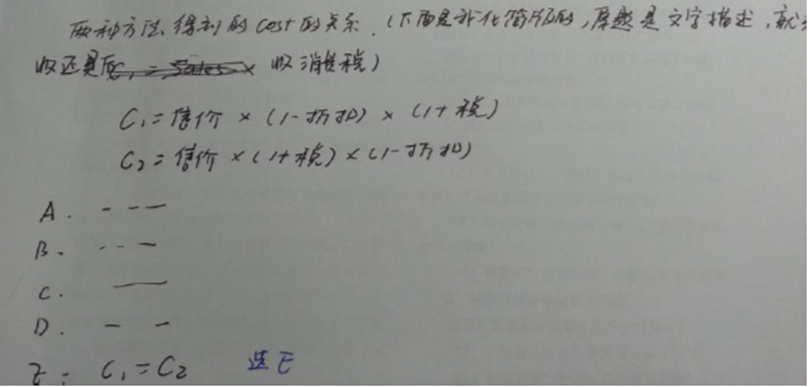 两种方法得到的cost的关系.(下面是补化简版的,原题是文字描述,就
收还是 收消费税)
C₁=售价×(1-折扣)×(1+税)
C₂=售价×(1+税)×(1-折扣)
A. - - -
B. - - -
C. —
D. - -
E. C₁=C₂ 选E